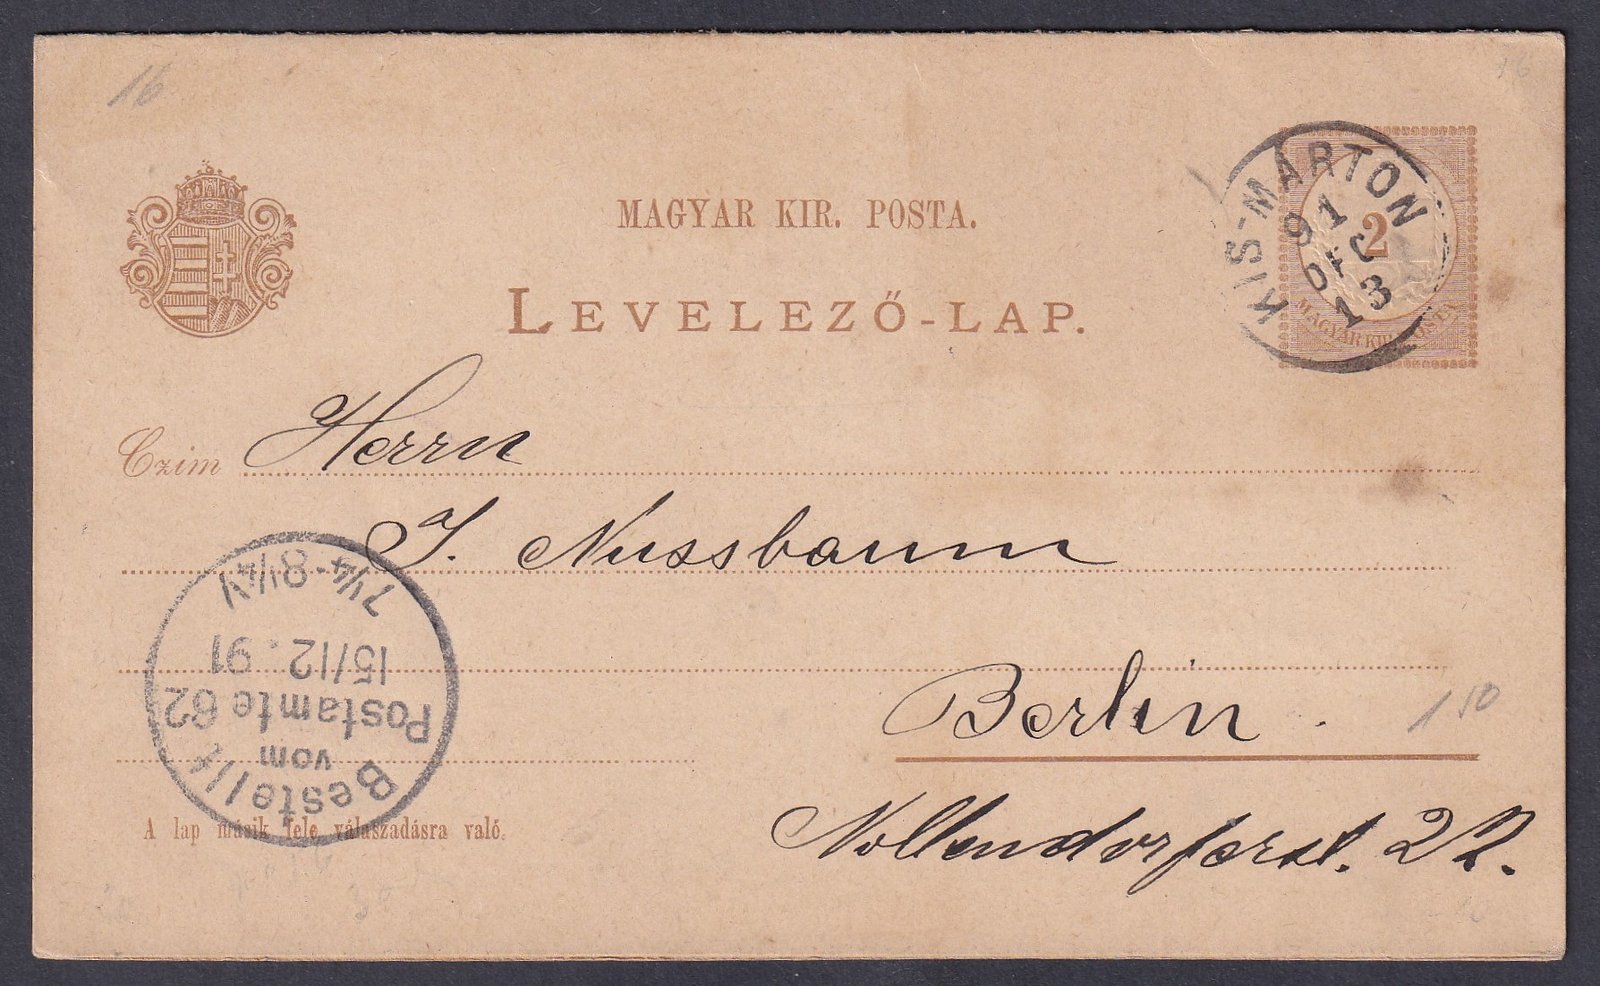 16
MAGYAR KIR. POSTA.
LEVELEZŐ-LAP.
KIS-MÁRTON
91
DEC
13
2
MAGYAR KIR. POSTA
Czim Herrn
J. Nussbaum
Berlin.
Nollendorferst. 22.
150
Bestellt
vom
Postamte 62
15/12.91
7¼-8¼V
A lap másik fele válaszadásra való.